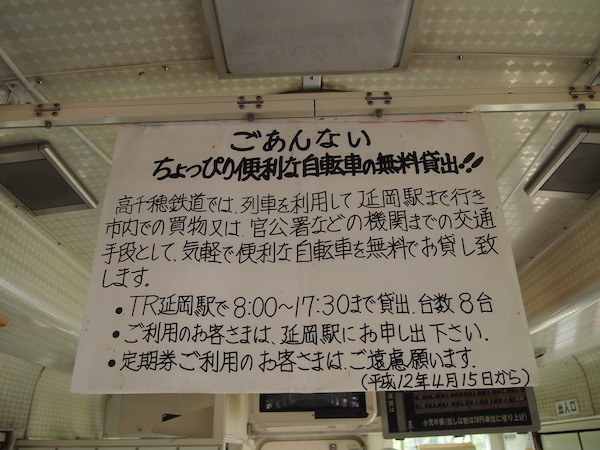 ごあんない
ちょっぴり便利な自転車の無料貸出!!
高千穂鉄道では、列車を利用して延岡駅まで行き
市内での買物又は、官公署などの機関までの交通
手段として、気軽で便利な自転車を無料でお貸し致
します。
•TR延岡駅で8:00〜17:30まで貸出、台数8台
•ご利用のお客さまは、延岡駅にお申し出下さい.
•定期券ご利用のお客さまは、ご遠慮願います.
(平成12年4月15日から)
出入口
小児半額(但しは数は10円単位に切り上げ)